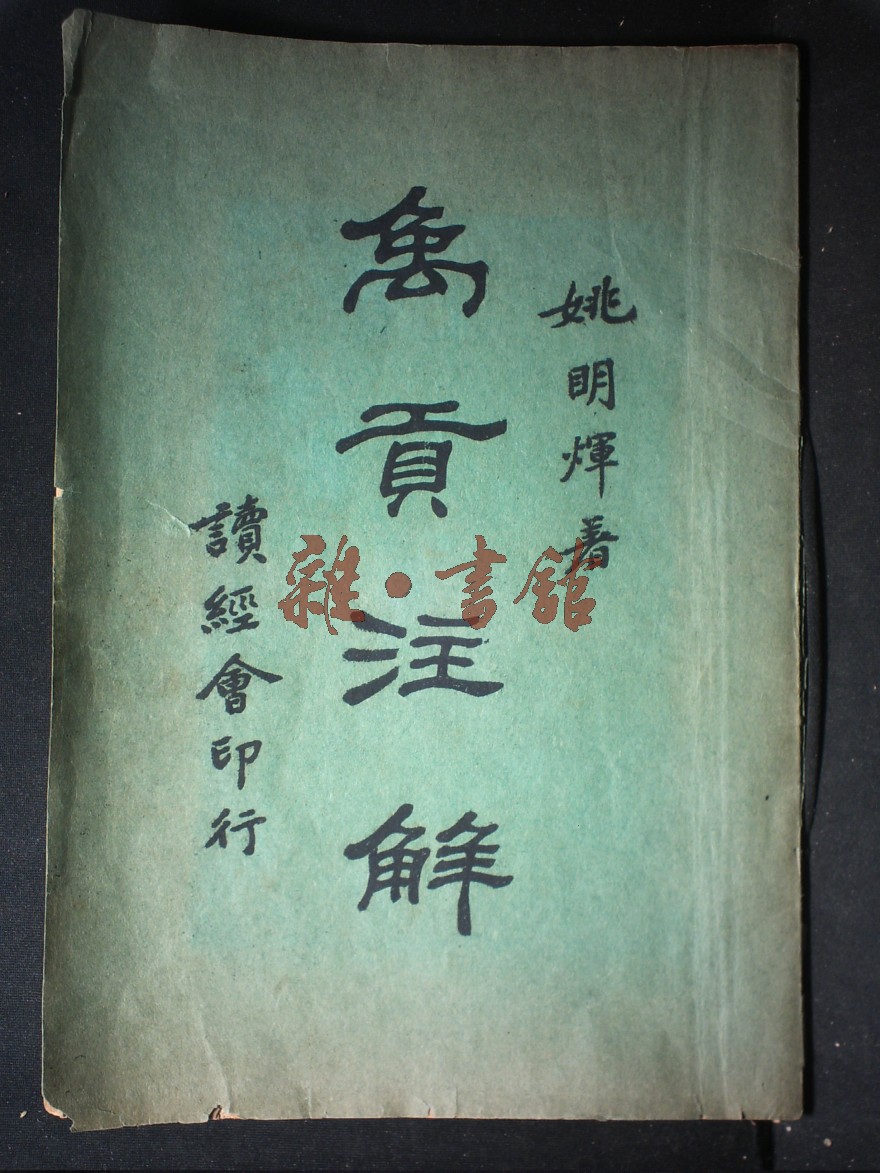 姚明煇著
禹貢注解
讀經會印行
雜·書館